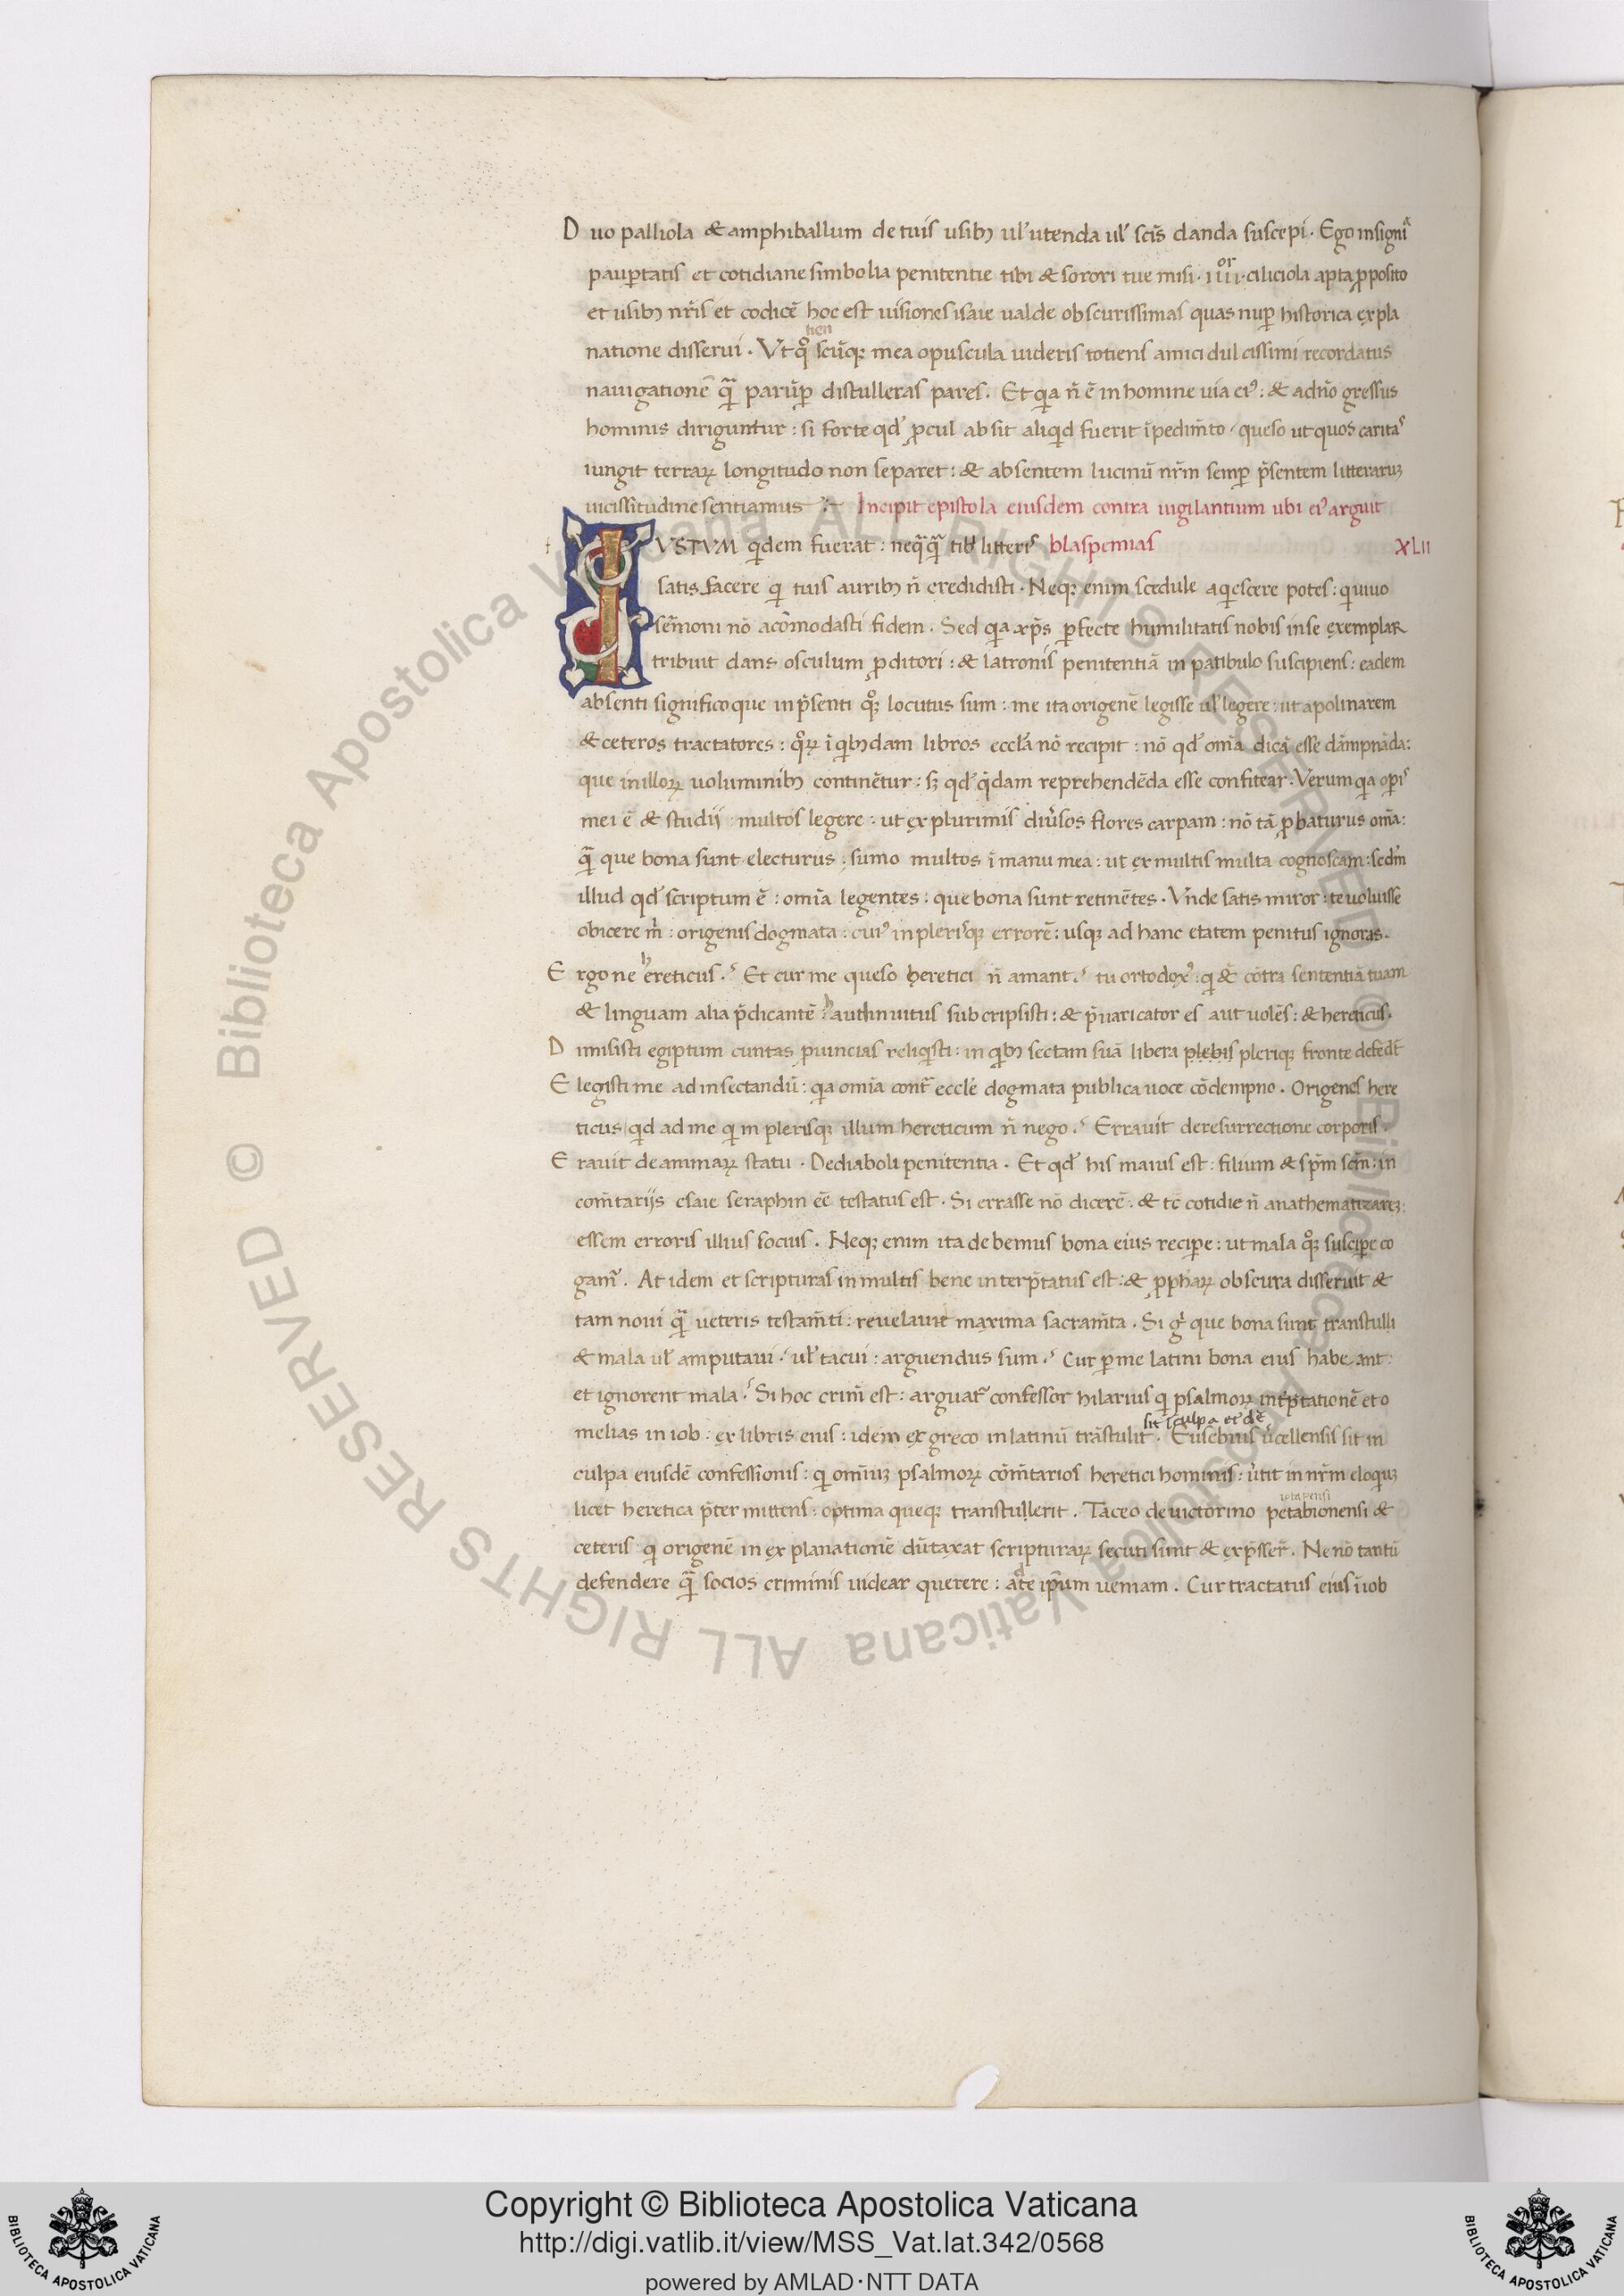 Duo palliola & amphiballum de tuis usibꝫ ul' utenda ul' scīs danda suscepi. Ego insignia
paup̱tatis et cotidiane simbolia penitentie tibi & sorori tue misi. iiiior. ciliciola apta ꝓposito
et usibꝫ nr̄is et codicē hoc est uisiones isaie ualde obscurissimas quas nup̱ historica expla
natione disserui. Vt qͦscūqꝫ mea opuscula uideris totiens amici dulcissimi recordatus
nauigationē qā parūp̱ distulleras pares. Et qia n̄ ē in homine uia ei': & a dn̄o gressus
hominis diriguntur: si forte qd' ꝓcul absit aliqid fuerit īpedim̄to / queso ut quos caritas
iungit terraꝝ longitudo non separet: & absentem lucinū nr̄m semp̱ p̄sentem litteraruꝫ
uicissitudine sentiamus Incipit epistola eiusdem contra uigilantium ubi ei' arguit
IVSTVM qidem fuerat: neqāqā tibi litteris blaspemias XLII
satisfacere qi tuis auribꝫ n̄ credidisti. Neqꝫ enim scedule aqiescere potes: qi uiuo
sermoni nō acōmodasti fidem. Sed qia xp̄s p̱fecte humilitatis nobis in se exemplar
tribuit dans osculum ꝓditori: & latronis penitentiā in patibulo suscipiens: eadem
absenti significo que in p̄senti qͦqꝫ locutus sum: me ita origenē legisse ul' legere: ut apolinarem
& ceteros tractatores: qͦꝝ ī qibꝫdam libros eccl'a nō recipit: nō qd' om̄a dicā esse dāmpnāda:
que in illoꝝ uoluminibꝫ continētur: sꝫ qd' qedam reprehendēda esse confitear. Verum qia op̱is
mei ē & studii multos legere: ut ex plurimis diu'sos flores carpam: nō tā ꝓbaturus om̄a:
qā que bona sunt electurus: sumo multos ī manu mea: ut ex multis multa cognoscam: scdm̄
illud qd' scriptum ē: om̄ia legentes: que bona sunt retinētes. Vnde satis miror: te uoluisse
obicere m̄: origenis dogmata: cui' in plerisqꝫ errorē: usqꝫ ad hanc etatem penitus ignoras.
Ergo ne hereticus? Et cur me queso heretici n̄ amant? tu ortodox': qi &' cōtra sententiā tuam
& linguam alia p̄dicantē: aut inuitus subcripsisti: & p̄uaricator es aut uolēs: & hereticus.
Dimisisti egiptum cuntas ꝓuincias reliqisti: in qibꝫ sectam suā libera plebis plerique fronte defēdt̄
Elegisti me ad insectandū: qia omīa cont̄ eccl'e dogmata publica uoce cōdempno. Origenes here
ticus / qid ad me qi in plerisqꝫ illum hereticum n̄ nego? Errauit de resurrectione corporis.
Erauit de animaꝝ statu. De diaboli penitentia. Et qd' his maius est: filium & sp̄m scm̄: in
com̄tarijs esaie seraphin eē testatus est. Si errasse nō dicerē. & tc̄ cotidie n̄ anathematizareꝫ:
essem erroris illius socius. Neqꝫ enim ita debemus bona eius recip̱e: ut mala qͦqꝫ suscip̱e co
gam'. At idem et scripturas in multis bene interp̄tatus est: & ꝓphaꝝ obscura disseruit &
tam noui qā ueteris testam̄ti: reuelauit maxima sacram̄ta. Si gͥ que bona sunt transtulli
& mala ul' amputaui / ul' tacui: arguendus sum? Cur p̱ me latini bona eius habeant:
et ignorent mala? Si hoc crim̄ est: arguat' confessor hilarius qi psalmoꝝ int̄p̄tationē et o
melias in iob: ex libris eius: idem ex greco in latinū trāstulit. sit ī culpa et' dē Eusebius u'cellensis sit in
culpa eiusdē confessionis: qi omiuꝫ psalmoꝝ cōm̄tarios heretici hominis: u'tit in nr̄m eloquꝫ
licet heretica p̄termittens: optima queqꝫ transtullerit. Taceo de uictorino petabionensi &
ceteris qi origenē in explanationē dūtaxat scripturaꝝ secuti sunt & exp̄sser̄. Ne nō tantū
defendere qā socios criminis uidear querere: ad te ip̄um ueniam. Cur tractatus eius ī iob
Copyright © Biblioteca Apostolica Vaticana
http://digi.vatlib.it/view/MSS_Vat.lat.342/0568
powered by AMLAD·NTT DATA
BIBLIOTECA APOSTOLICA VATICANA
BIBLIOTECA APOSTOLICA VATICANA
© Biblioteca Apostolica Vaticana ALL RIGHTS RESERVED © Biblioteca Apostolica Vaticana ALL RIGHTS RESERVED